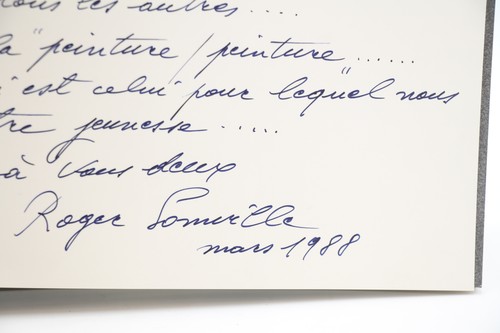 tous les autres ....
la "peinture / peinture ......
est celui pour lequel" nous
tre jeunesse .....
à vous deux
Roger Somville
mars 1988